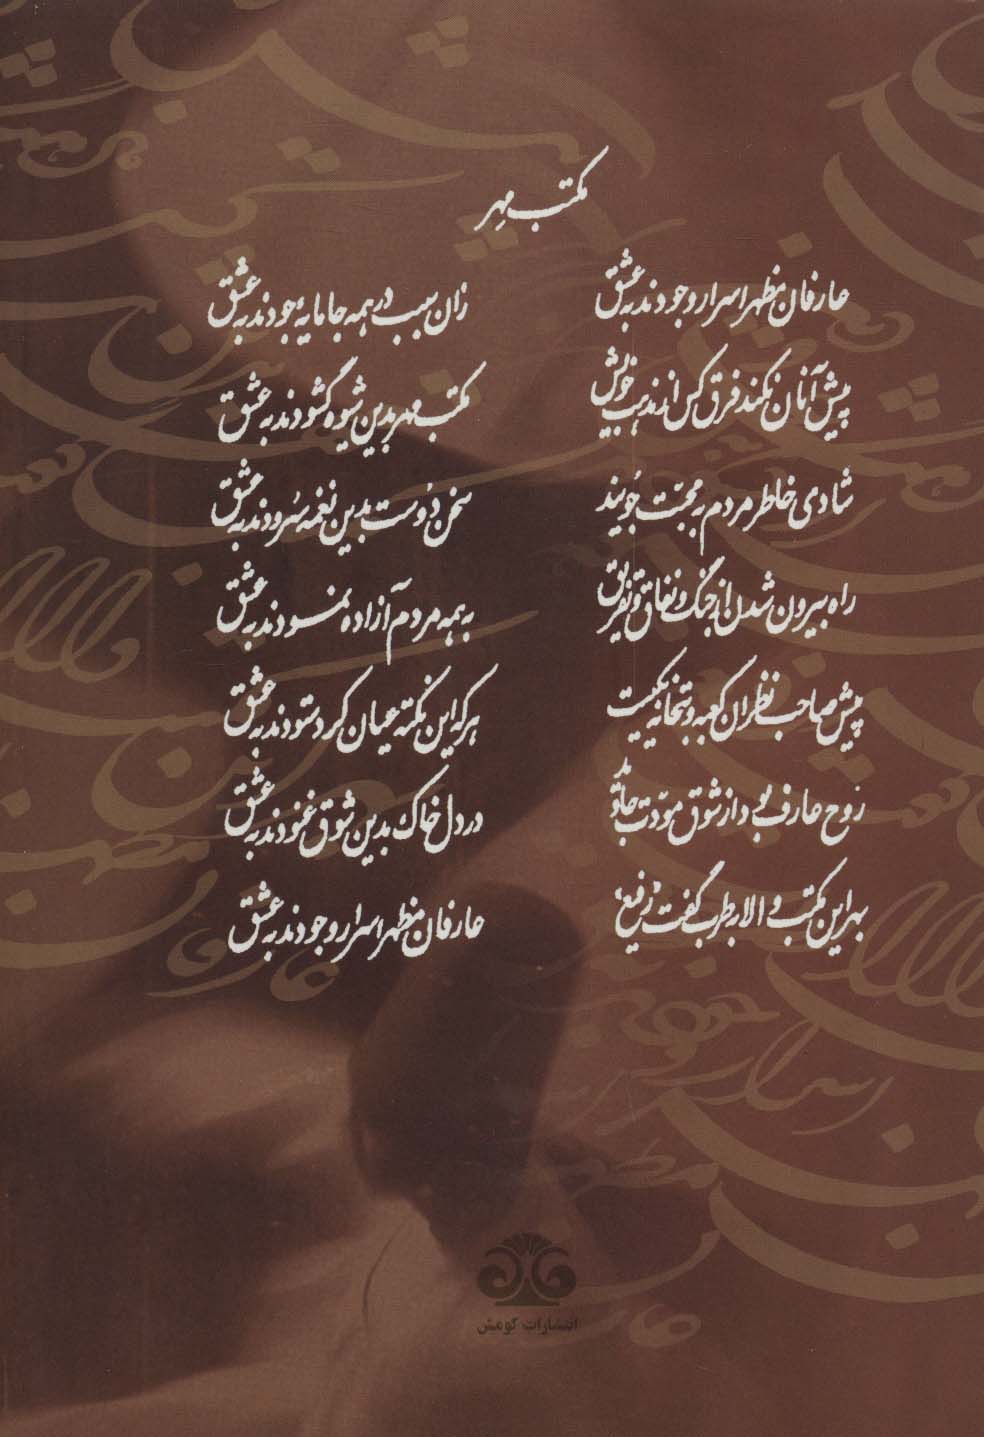 مکتب مهر
عارفان مظهر اسرار وجودند به عشق
زان سبب در همه جا مایهٔ جودند به عشق
پیش آنان نکند فرق کس از مذهب خویش
مکتب مهر بدین شیوه گشودند به عشق
شادی خاطر مردم به محبّت جویند
سخن دوست بدین نغمه سُرودند به عشق
راه بیرون شدن از جنگ و نفاق و تفریق
به همه مردم آزاده نمودند به عشق
پیش صاحب نظران کعبه و بتخانه یکیست
هر که این نکته عیان کرد ستودند به عشق
رُوح عارف بود از شوق مودّت جاوید
در دل خاک بدین شوق غنودند به عشق
بهر این مکتب والا به طرب گفت رفیع؛
عارفان مظهر اسرار وجودند به عشق
انتشارات کومش